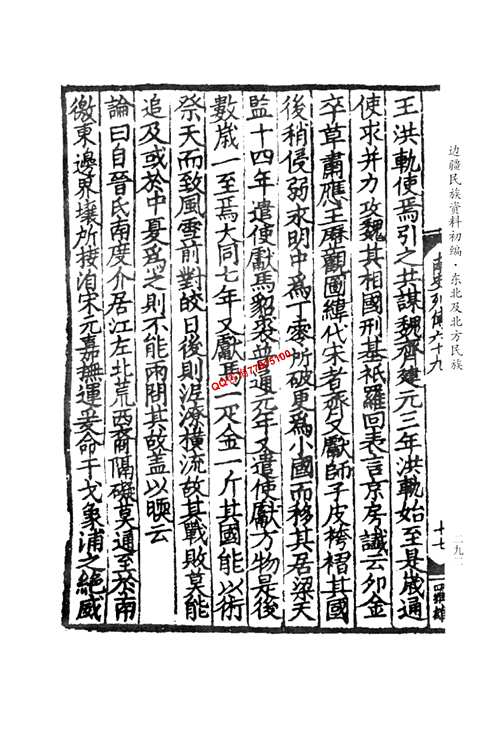 边疆民族资料初编·东北及北方民族
二九二
南史列傳六十九
十七
王洪軌使焉引之共謀魏齊建元三年洪軌始至是歲通
使求并力攻魏其相國刑基祇羅回表言京房讖云卯金
卒草肅應王曆觀圖緯代宋者齊又獻師子皮袴褶其國
後稍侵弱永明中爲丁零所破更爲小國而移其居梁天
監十四年遣使獻馬貂裘普通元年又遣使獻方物是後
數歲一至焉大同七年又獻馬一疋金一斤其國能以術
祭天而致風雪前對皎日後則泥潦橫流故其戰敗莫能
追及或於中夏爲之則不能雨問其故蓋以暖云
論曰自晉氏南度介居江左北荒西裔隔礙莫通至於南
徼東邊界壤所接洎宋元嘉撫運爰命干戈象浦之絕威